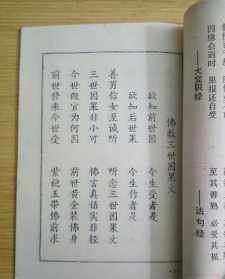 因缘会遇时 果报还自受
——大宝积经
至其善熟 必受其福
——法句经
佛教三世因果文
欲知前世因 今生受者是
欲知后世果 今生作者是
善男信女至诚听 听念三世因果文
三世因果非小可 佛言真话实非轻
今世做官为何因 前世黄金装佛身
前世修来今世受 紫袍玉带佛前求